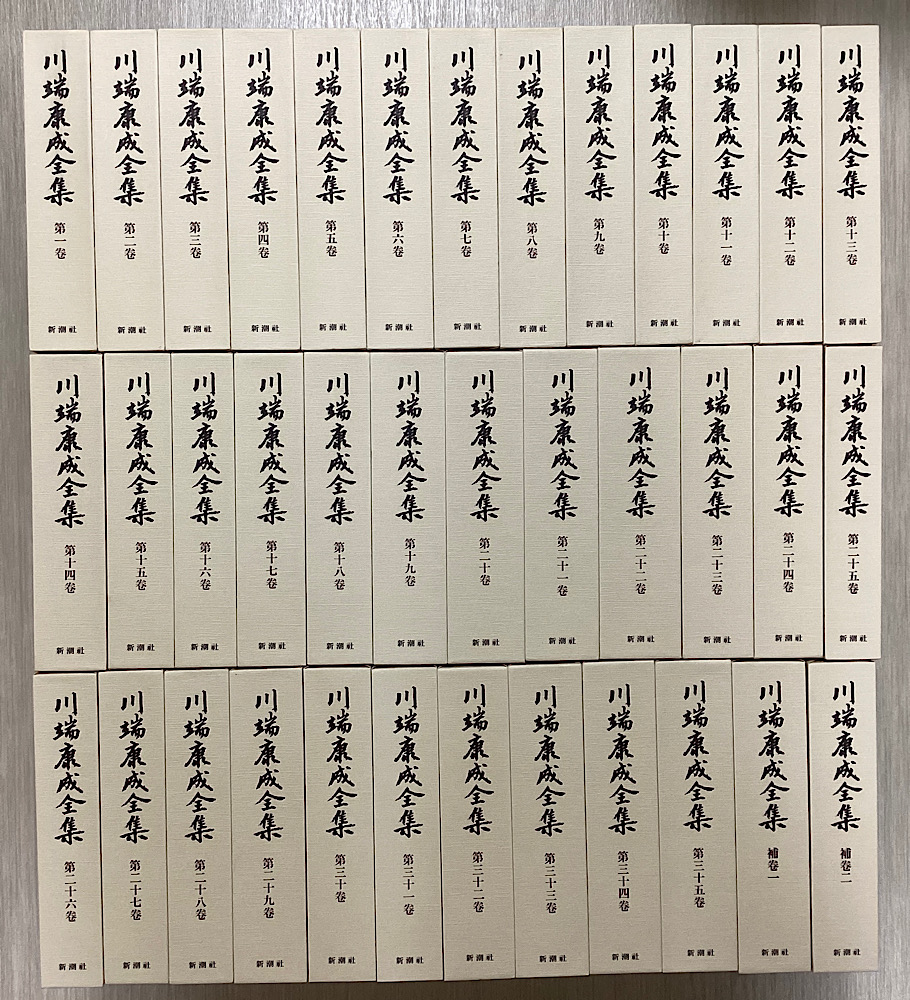 川端康成全集 第一卷 新潮社
川端康成全集 第二卷 新潮社
川端康成全集 第三卷 新潮社
川端康成全集 第四卷 新潮社
川端康成全集 第五卷 新潮社
川端康成全集 第六卷 新潮社
川端康成全集 第七卷 新潮社
川端康成全集 第八卷 新潮社
川端康成全集 第九卷 新潮社
川端康成全集 第十卷 新潮社
川端康成全集 第十一卷 新潮社
川端康成全集 第十二卷 新潮社
川端康成全集 第十三卷 新潮社
川端康成全集 第十四卷 新潮社
川端康成全集 第十五卷 新潮社
川端康成全集 第十六卷 新潮社
川端康成全集 第十七卷 新潮社
川端康成全集 第十八卷 新潮社
川端康成全集 第十九卷 新潮社
川端康成全集 第二十卷 新潮社
川端康成全集 第二十一卷 新潮社
川端康成全集 第二十二卷 新潮社
川端康成全集 第二十三卷 新潮社
川端康成全集 第二十四卷 新潮社
川端康成全集 第二十五卷 新潮社
川端康成全集 第二十六卷 新潮社
川端康成全集 第二十七卷 新潮社
川端康成全集 第二十八卷 新潮社
川端康成全集 第二十九卷 新潮社
川端康成全集 第三十卷 新潮社
川端康成全集 第三十一卷 新潮社
川端康成全集 第三十二卷 新潮社
川端康成全集 第三十三卷 新潮社
川端康成全集 第三十四卷 新潮社
川端康成全集 第三十五卷 新潮社
川端康成全集 補卷一 新潮社
川端康成全集 補卷二 新潮社